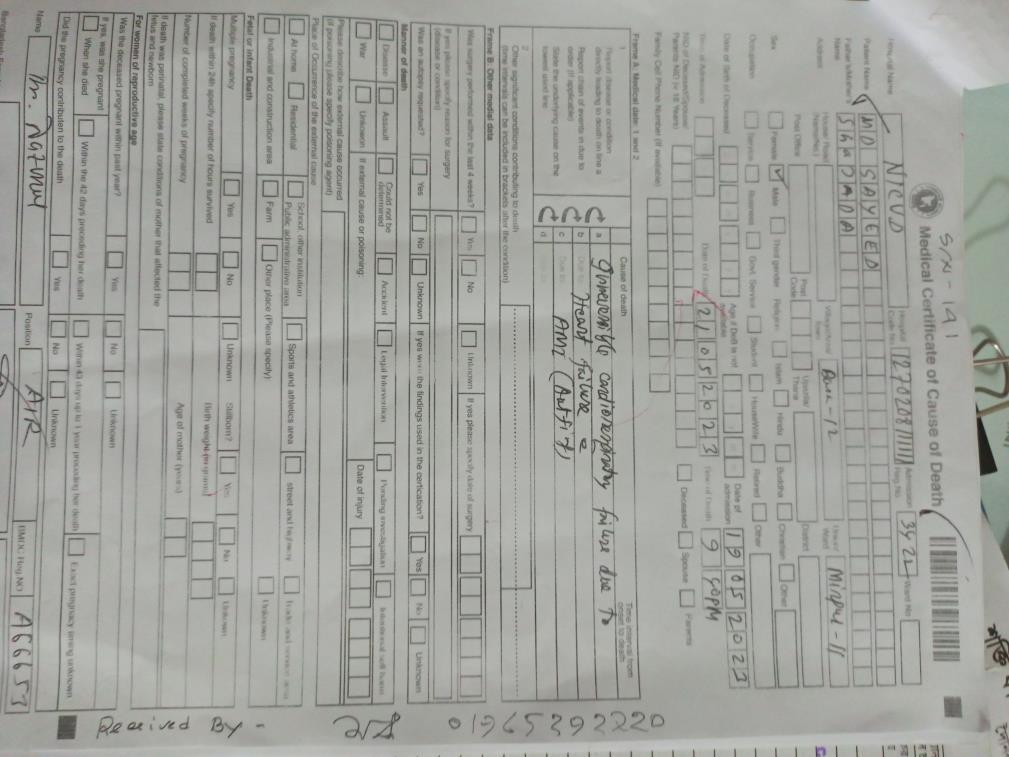 S/N - 141
Medical Certificate of Cause of Death
Hospital Name NICVD Hospital Code No. Admission Reg No. 3422 Ward No
Patient Name MD SAYEED
Father's/Mother's Name Shahada
Address House/ Road Name(No.) Village/ Town Union/ Ward Mirpur-11
Post Office Post Code Upazila/ Thana District
Sex Female Male Third gender Religion Islam Hindu Buddha Christian Other
Occupation Service Business Govt. Service Student HouseWife Retired Other
Date of Birth of Deceased Age if DoB is not available Date of admission 19 05 2023
Date of Death 21 05 2023 Time of Death 9
NID of Deceased/Spouse/ Parents NID (< 18 Years) Deceased Spouse Parents
Family Cell Phone Number (If available)
Frame A: Medical data: 1 and 2
1 Cause of death Time interval from onset to death
Report disease or condition directly leading to death on line a a Irreversible cardiorespiratory failure due to
Report chain of events in due to order (if applicable) b Due to: Heart failure
State the underlying cause on the lowest used line c Due to: AMI
d Due to:
2 Other significant conditions contributing to death
(time intervals can be included in brackets after the condition)
Frame B: Other medical data
Was surgery performed within the last 4 weeks? Yes No Unknown If yes please specify date of surgery
If yes please specify reason for surgery
(disease or condition)
Was an autopsy requested? Yes No Unknown If yes were the findings used in the certification? Yes No Unknown
Manner of death
Disease Assault Could not be determined Accident Legal Intervention Pending investigation Intentional self harm
War Unknown If external cause or poisoning: Date of injury
Please describe how external cause occurred
(if poisoning please specify poisoning agent)
Place of Occurrence of the external cause
At home Residential School, other institution Public administrative area Sports and athletics area street and highway Trade and service area
Industrial and construction area Farm Other place (Please specify) Unknown
Fetal or infant Death
Multiple pregnancy Yes No Unknown Stillborn? Yes No Unknown
If death within 24h specify number of hours survived Birth weight (in grams)
Number of completed weeks of pregnancy Age of mother (years)
If death was perinatal, please state conditions of mother that affected the
fetus and newborn
For women of reproductive age
Was the deceased pregnant within past year? Yes No Unknown
If yes, was she pregnant
When she died Within the 42 days preceding her death Within 43 days up to 1 year preceding her death Exact pregnancy timing unknown
Did the pregnancy contribute to the death Yes No Unknown
Name Position BMDC Reg.NO A66653
Received By - 01965292220